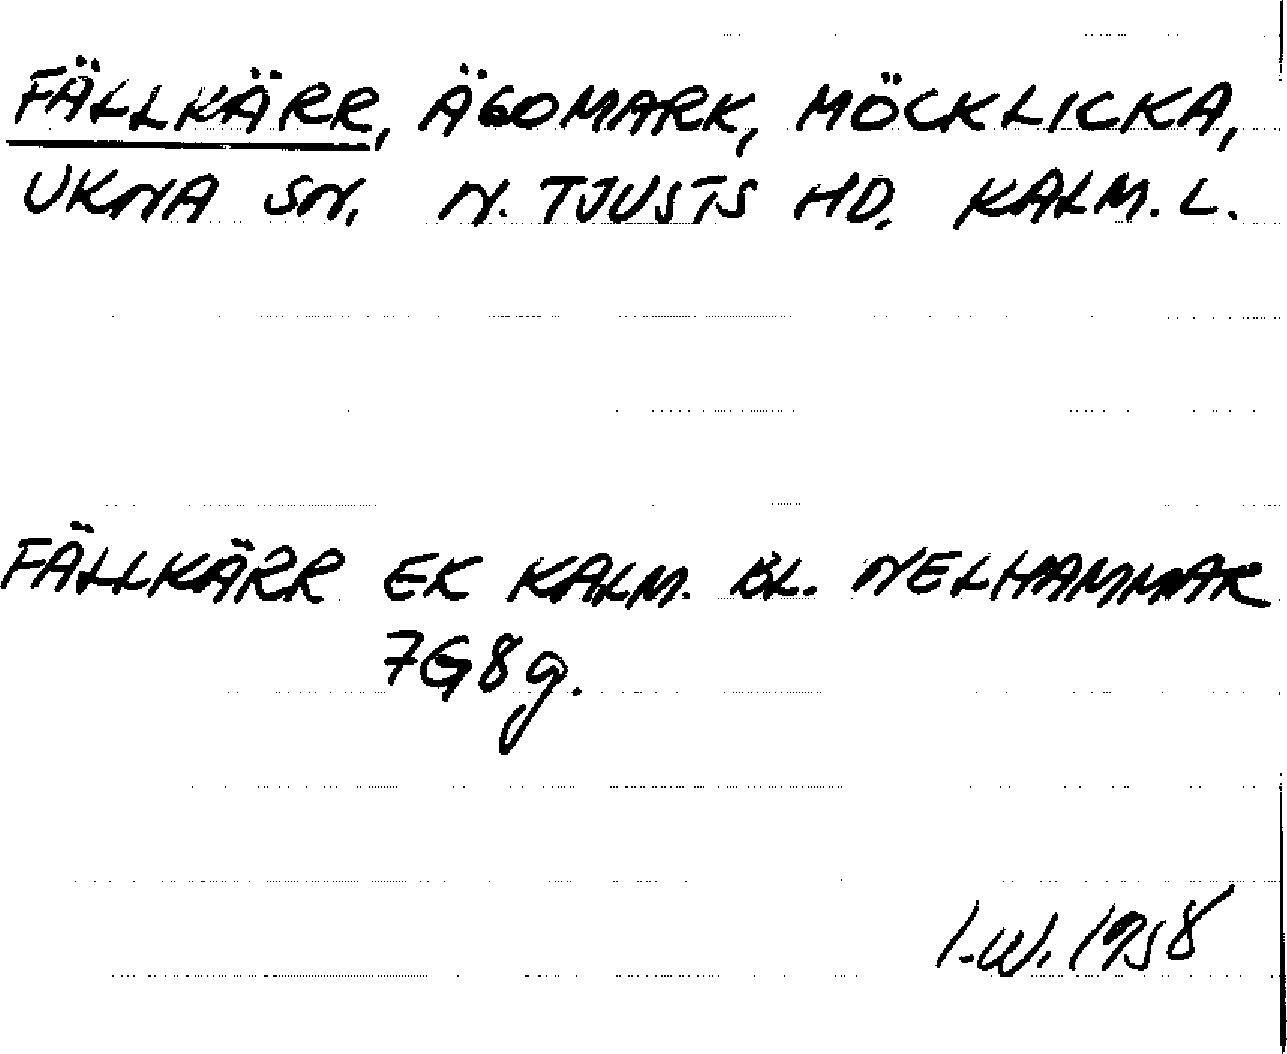 FÄLLKÄRR, ÄGOMARK, MÖCKLICKA,
UKNA SN. N. TJUSTS HD. KALM. L.
FÄLLKÄRR EK KALM. BL. NELHAMMAR
7G8g.
I.W. 1958